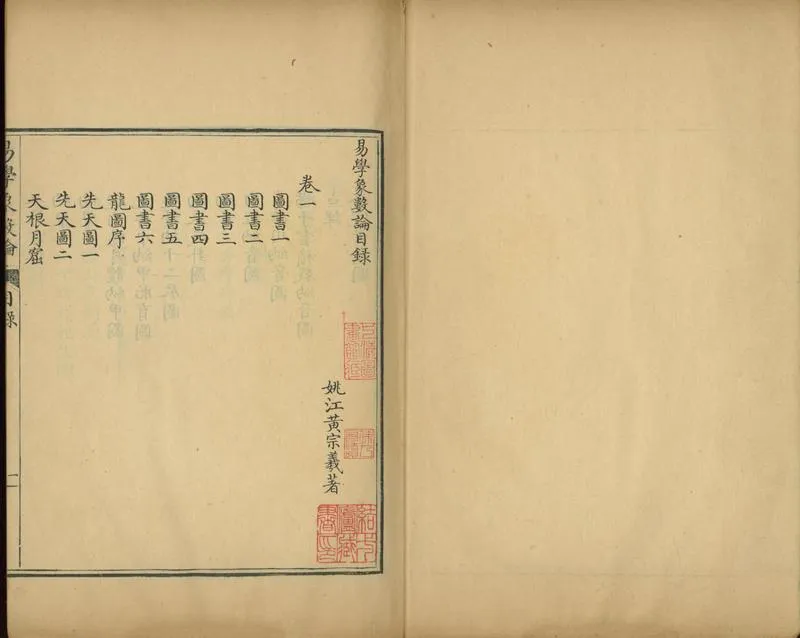 易學象數論目錄
姚江黃宗羲著
卷一
圖書一
圖書二
圖書三
圖書四
圖書五
圖書六
龍圖序
先天圖一
先天圖二
天根月窟
易學象數論
目錄
一